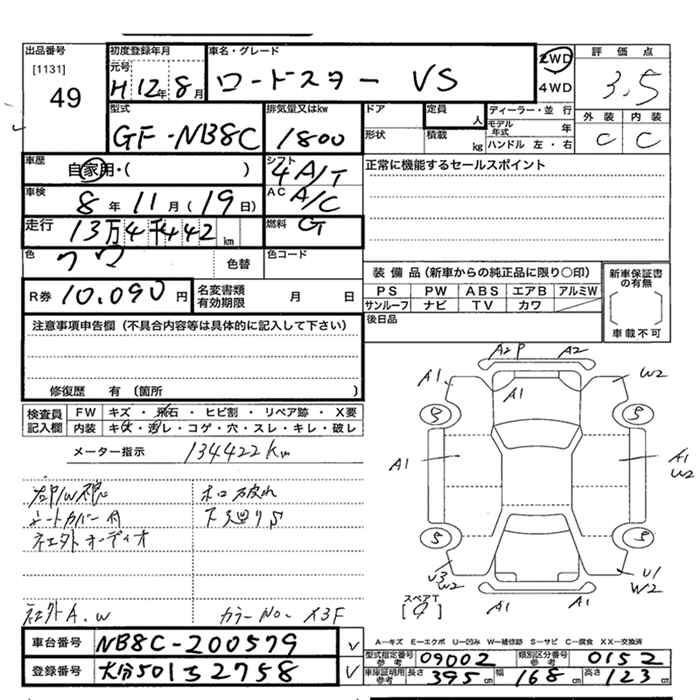 出品番号 [1131] 49
初度登録年月 元号 H12年8月
車名・グレード ロードスター VS
2WD 4WD
評価点 3.5
型式 GF-NB8C
排気量又はkw 1800
ドア 形状
定員 人 積載 kg
ディーラー・並行
モデル年式 年
ハンドル 左・右
外装 C 内装 C
車歴 自家用・( )
シフト 4A/T
正常に機能するセールスポイント
車検 8年11月(19日)
AC A/C
走行 13万4千442km
燃料 G
色 クワ 色替
色コード
R券 10,090円
名変書類有効期限 月 日
装備品(新車からの純正品に限り○印)
PS PW ABS エアB アルミW
サンルーフ ナビ TV カワ
新車保証書の有無
車載不可
後日品
注意事項申告欄(不具合内容等は具体的に記入して下さい)
修復歴 有(箇所 )
検査員記入欄
FW キズ・飛石・ヒビ割・リペア跡・X要
内装 キズ・汚レ・コゲ・穴・スレ・キレ・破レ
メーター指示 134422km
シートカバー付 下廻りS
社外オーディオ
社外A.W カラーNo- X3F
A2P A2
A1 A1 W2
A1 A1 W2
U3 W2 A1 A1 U1 W2
スペアT
A―キズ E―エクボ U―凹み W―補修跡 S―サビ C―腐食 XX―交換済
車台番号 NB8C-200579
登録番号 大分501ミ2758
型式指定番号参考 09002
類別区分番号参考 0152
車庫証明用参考 長さ 395cm 幅 168cm 高さ 123cm